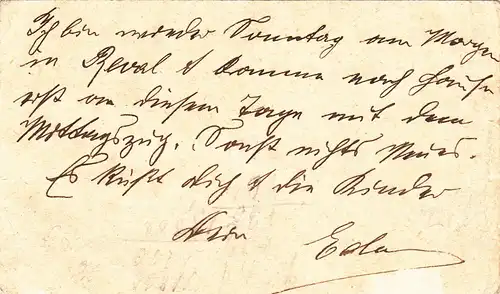 Ich bin wieder Sonntag am Morgen
in Reval & komme nach Hause
erst an diesem Tage mit dem
Mittagszug. Sonst nichts Neues.
Es küßt Dich & die Kinder
Dein